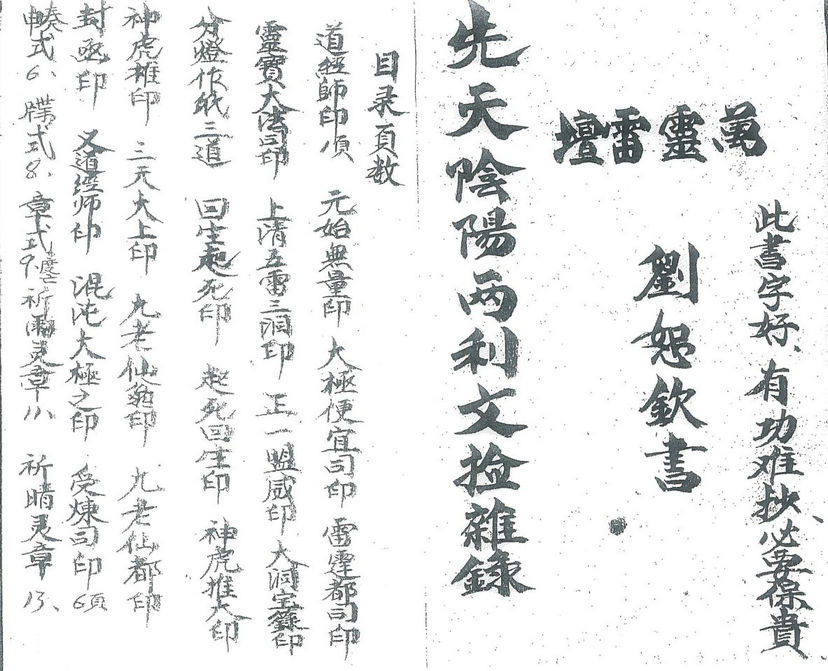 此書字好、有功难抄必要保貴、
萬靈雷壇
劉恕欽書
先天陰陽两利文捡雜錄
目录頁数
道經師印 元始無量印 大極便宜司印 雷霆都司印
靈寶大法司印 上清五雷三洞印 正一盟威印 大洞宝籙印
分燈作紙三道 回生起死印 起死回生印 神虎推大印
神虎推印 三天大上印 九老仙翁印 九老仙都印
封函印 又道經师印 混沌大極之印 受煉司印 6頁
式6、牒式8、章式9、祈灵章 祈晴灵章 13、